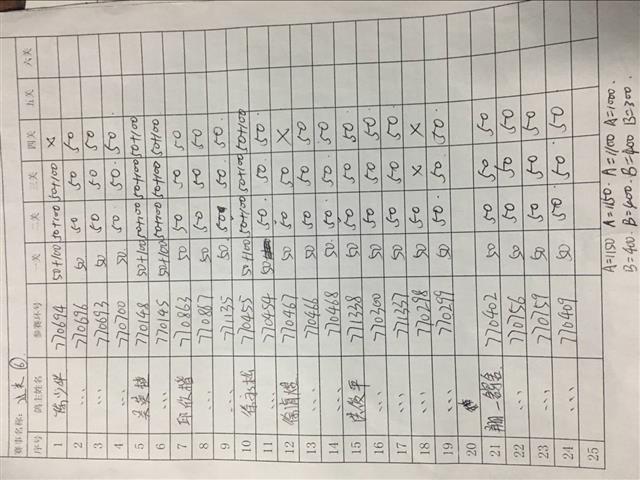 赛事名称: ⑥
序号 鸽主姓名 参赛环号 一关 二关 三关 四关 五关 六关
1 770694 50+100 50+100 50+100 X
2 ... 770696 50 50 50 50
3 ... 770693 50 50 50 50
4 ... 770700 50 50 50 50
5 吴英雄 770148 50+100 50+100 50+100 50+100
6 ... 770145 50+100 50+100 50+100 50+100
7 邱欣楷 710863 50 50 50 50
8 ... 770867 50 50 50 50
9 ... 771135 50 50 50 50
10 770455 50+100 50+100 50+100 50+100
11 ... 770454 50 50 50 50
12 770467 50 50 50 X
13 ... 770466 50 50 50 50
14 ... 770468 50 50 50 50
15 771338 50 50 50 50
16 ... 770300 50 50 50 50
17 ... 771337 50 50 50 50
18 ... 770298 50 50 X X
19 ... 770299 50 50 50 50
20
21 770402 50 50 50 50
22 ... 770756 50 50 50 50
23 ... 770759 50 50 50 50
24 ... 770409 50 50 50 50
25
A=1150 A=1150 A=1100 A=1000
B=400 B=400 B=400 B=300